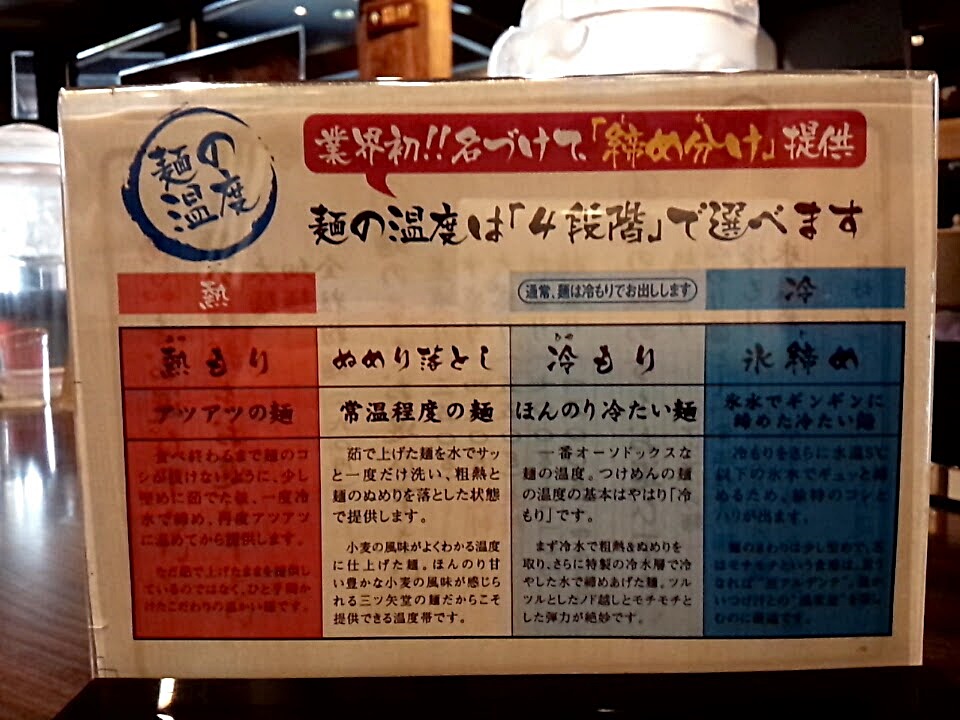 麺の
温度
業界初!!名づけて、「締め分け」提供
麺の温度は「4段階」で選べます
熱
通常、麺は冷もりでお出しします
冷
熱もり
ぬめり落とし
冷もり
氷締め
アツアツの麺
常温程度の麺
ほんのり冷たい麺
氷水でギンギンに
締めた冷たい麺
食べ終わるまで麺のコ
シが抜けないように、少し
堅めに茹でた後、一度冷
水で締め、再度アツアツ
に温めてから提供します。
ただ茹で上げたままを提供し
ているのではなく、ひと手間か
けたこだわりの温かい麺です。
茹で上げた麺を水でサッ
と一度だけ洗い、粗熱と
麺のぬめりを落とした状態
で提供します。
小麦の風味がよくわかる温度
に仕上げた麺。ほんのり甘
い豊かな小麦の風味が感じら
れる三ツ矢堂の麺だからこそ
提供できる温度帯です。
一番オーソドックスな
麺の温度。つけめんの麺
の温度の基本はやはり「冷
もり」です。
まず冷水で粗熱&ぬめりを
取り、さらに特製の冷水層で冷
やした水で締めあげた麺。ツル
ツルとしたノド越しとモチモチと
した弾力が絶妙です。
冷もりをさらに水温5℃
以下の氷水でギュッと締
めるため、独特のコシと
ハリが出ます。
麺のまわりは少し堅めで、芯
はモチモチという食感は、言う
なれば